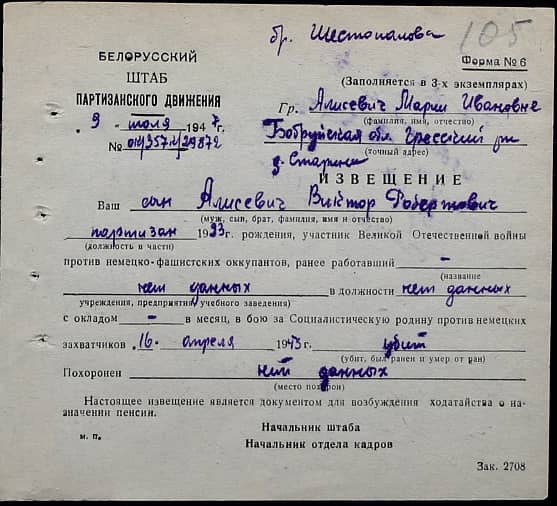 бр. Шестопалова
105
БЕЛОРУССКИЙ
ШТАБ
ПАРТИЗАНСКОГО ДВИЖЕНИЯ
9 июля 1947г.
№
Форма № 6
(Заполняется в 3-х экземплярах)
Гр. Алисевич Марии Ивановне
(фамилия, имя, отчество)
Бобруйская обл. Гресский рн
(точный адрес)
д. Старини
ИЗВЕЩЕНИЕ
Ваш сын Алисевич Виктор Робертович
(муж, сын, брат, фамилия, имя и отчество)
партизан 1923г. рождения, участник Великой Отечественной войны
(должность в части)
против немецко-фашистских оккупантов, ранее работавший –
(название
нет данных в должности нет данных
учреждения, предприятия, учебного заведения)
с окладом – в месяц, в бою за Социалистическую родину против немецких
захватчиков 16 апреля 1943г. убит
(убит, был ранен и умер от ран)
Похоронен нет данных
(место похорон)
Настоящее извещение является документом для возбуждения ходатайства о на-
значении пенсии.
Начальник штаба
м. п.
Начальник отдела кадров
Зак. 2708